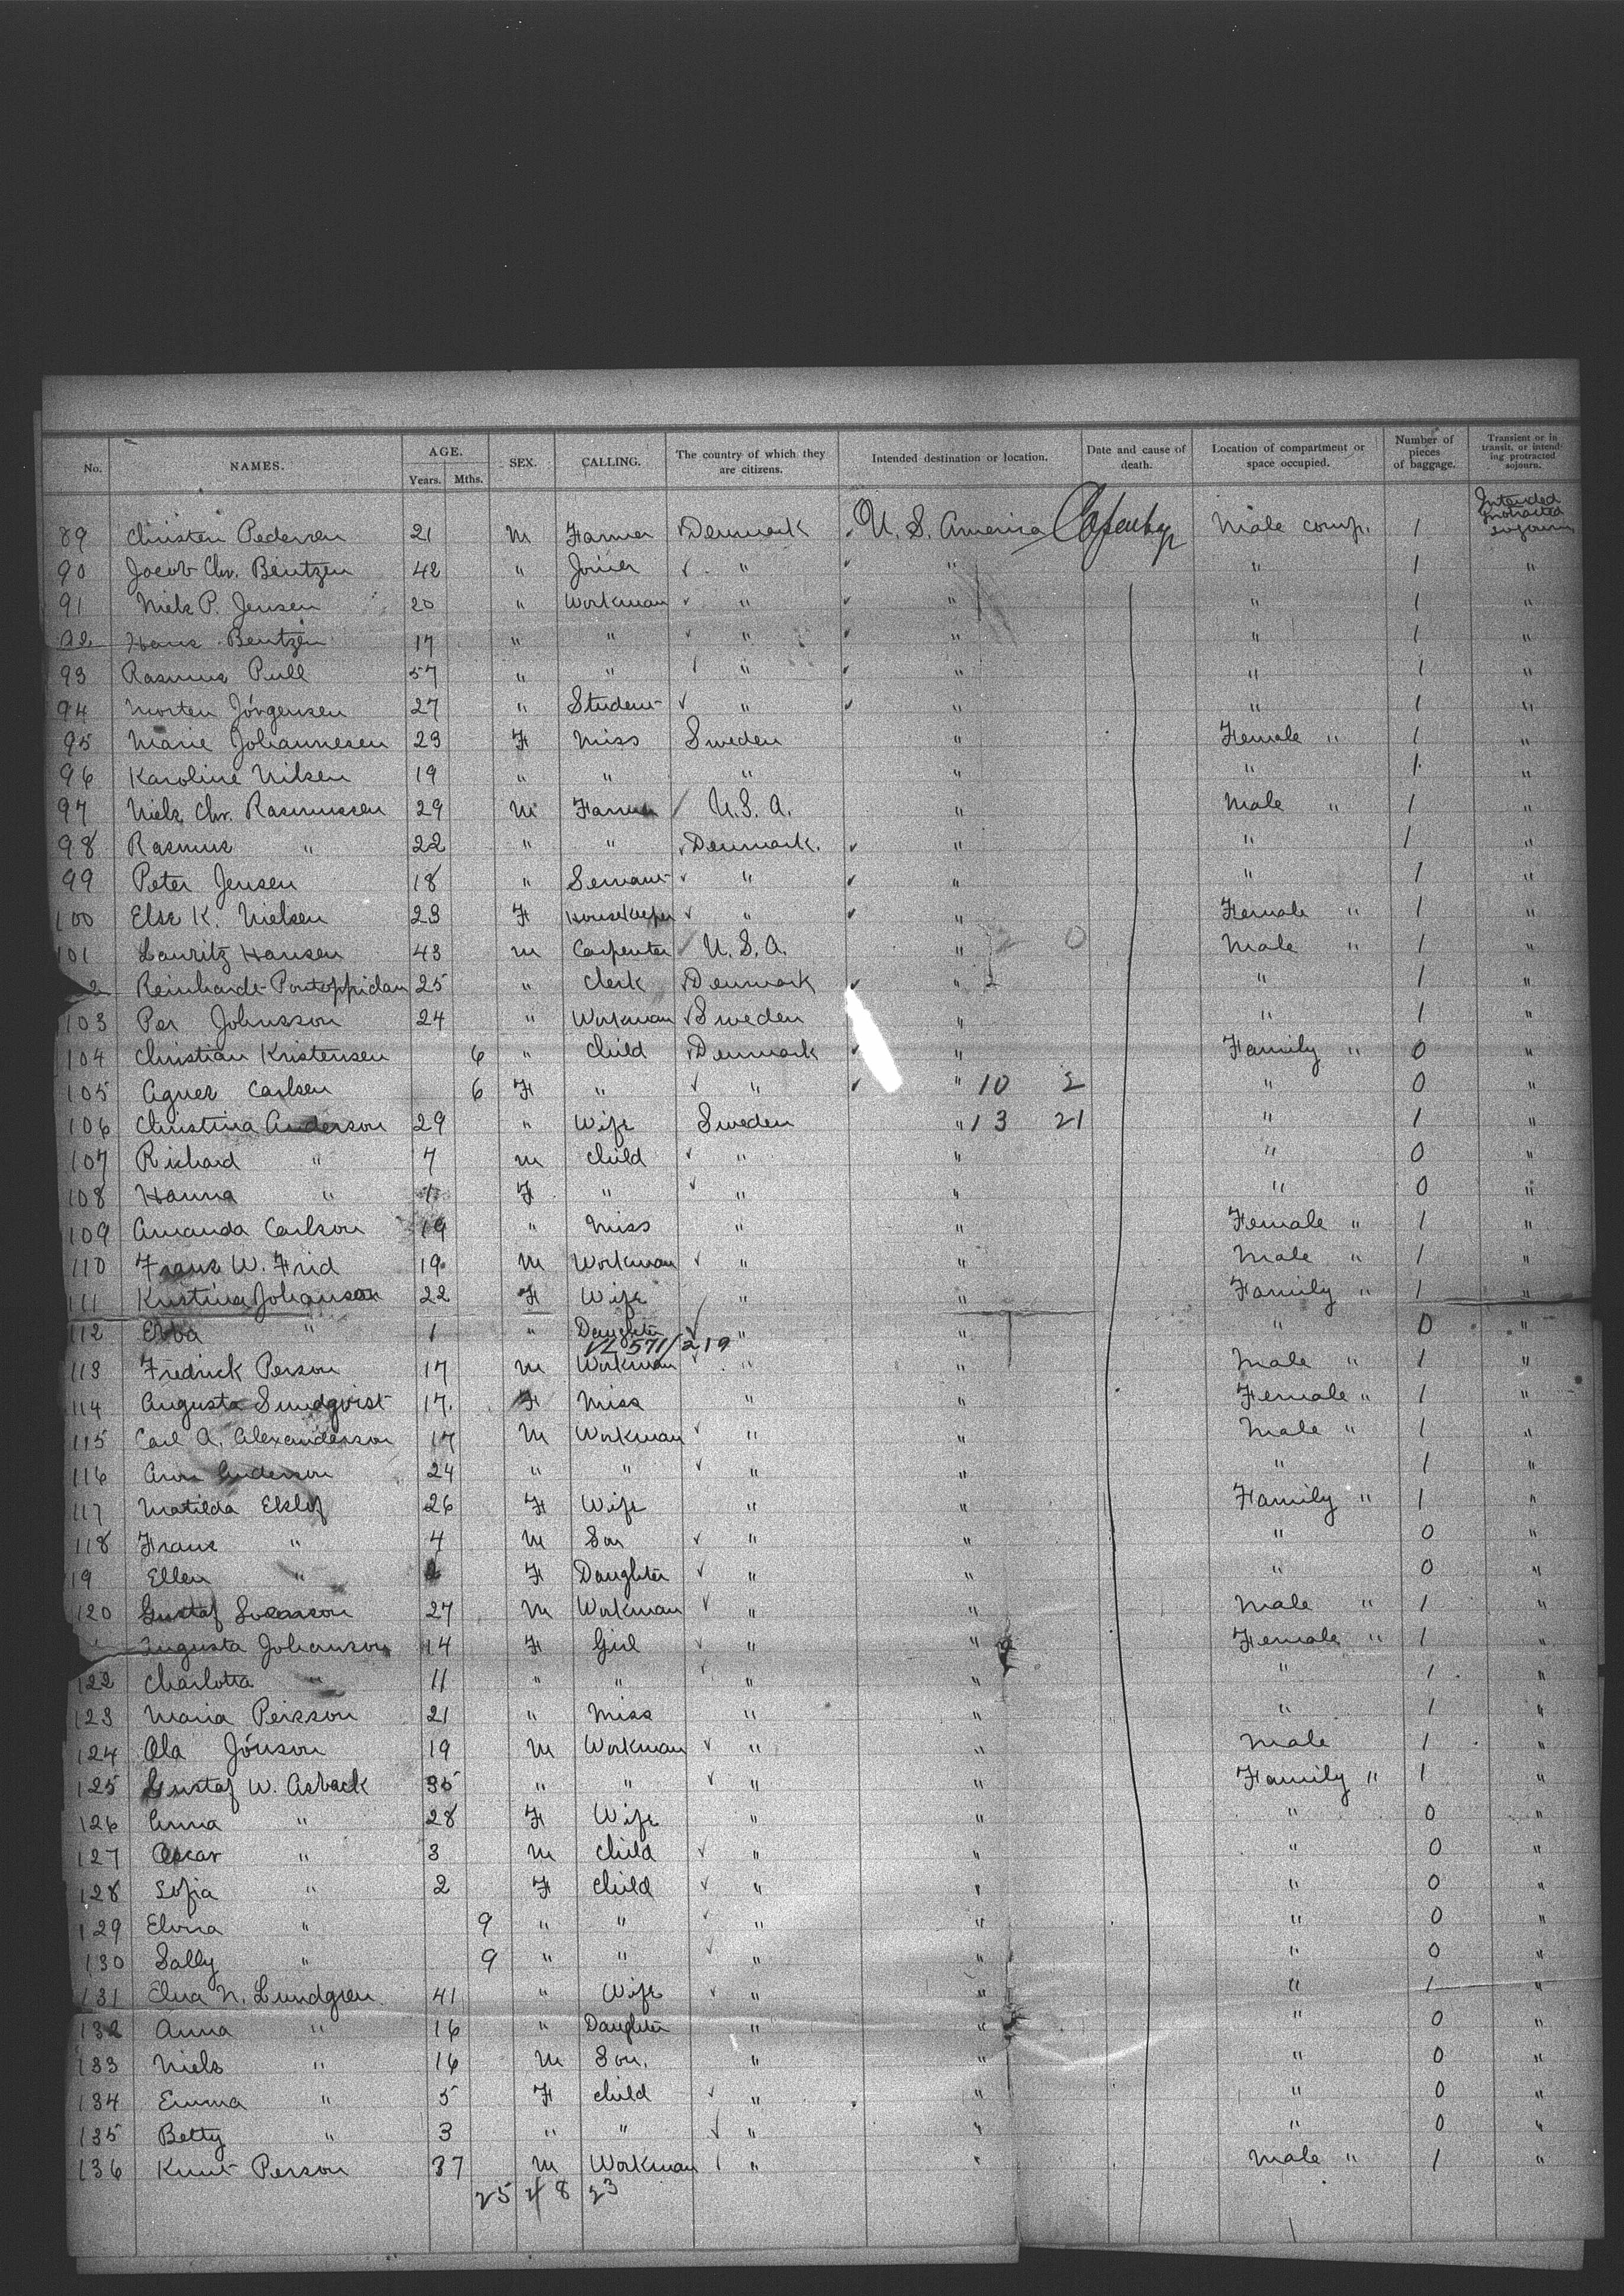 No. NAMES. AGE. Years. Mths. SEX. CALLING. The country of which they are citizens. Intended destination or location. Date and cause of death. Location of compartment or space occupied. Number of pieces of baggage. Transient or in transit, or intending protracted sojourn.
89 Christen Pedersen 21 M Farmer Denmark U. S. America Male comp. 1 Intended protracted sojourn
90 Jacob Chr. Bentzen 42 " Joiner " " " 1 "
91 Niels P. Jensen 20 " Workman " " " 1 "
92 Hans Bentzen 17 " " " " " 1 "
93 Rasmus Pull 57 " " " " " 1 "
94 Morten Jörgensen 27 " Student " " " 1 "
95 Marie Johannesen 23 F Miss Sweden " Female " 1 "
96 Karoline Nilsen 19 " " " " " 1 "
97 Niels Chr. Rasmussen 29 M Farmer U. S. A. " Male " 1 "
98 Rasmus " 22 " " Denmark. " " 1 "
99 Peter Jensen 18 " Servant " " " 1 "
100 Else K. Nielsen 23 F Housekeeper " " Female " 1 "
101 Lauritz Hansen 43 M Carpenter U. S. A. " Male " 1 "
2 Reinhardt Pontoppidan 25 " Clerk Denmark " " 1 "
103 Per Johnsson 24 " Workman Sweden " " 1 "
104 Christian Kristensen 6 " Child Denmark " Family " 0 "
105 Agnes Carlsen 6 F " " " 10 2 " 0 "
106 Christina Anderson 29 " Wife Sweden " 13 21 " 1 "
107 Richard " 7 M Child " " " 0 "
108 Hanna " 1 F " " " " 0 "
109 Amanda Carlson 19 " Miss " " Female " 1 "
110 Frans W. Frid 19 M Workman " " Male " 1 "
111 Kristina Johanson 22 F Wife " " Family " 1 "
112 Ebba " 1 " Daughter " " " 0 "
VL 571/219
113 Fredrick Person 17 M Workman " " Male " 1 "
114 Augusta Sundqvist 17. F Miss " " Female " 1 "
115 Carl A. Alexanderson 17 M Workman " " Male " 1 "
116 Aron Anderson 24 " " " " " 1 "
117 Matilda Eklöf 26 F Wife " " Family " 1 "
118 Frans " 4 M Son " " " 0 "
19 Ellen " F Daughter " " " 0 "
120 Gustaf Svensson 27 M Workman " " Male " 1 "
Augusta Johanson 14 F Girl " " Female " 1 "
122 Charlotta " 11 " " " " " 1 "
123 Maria Persson 21 " Miss " " " 1 "
124 Ola Jönson 19 M Workman " " Male 1 "
125 Gustaf W. Asback 35 " " " " Family " 1 "
126 Anna " 28 F Wife " " " 0 "
127 Oscar " 3 M Child " " " 0 "
128 Sofia " 2 F Child " " " 0 "
129 Elvira " 9 " " " " " 0 "
130 Sally " 9 " " " " " 0 "
131 Elna N. Lundgren 41 " Wife " " " 1 "
132 Anna " 16 " Daughter " " " 0 "
133 Niels " 16 M Son. " " " 0 "
134 Emma " 5 F Child " " " 0 "
135 Betty " 3 " " " " " 0 "
136 Knut Person 37 M Workman " " Male " 1 "
25 48 23